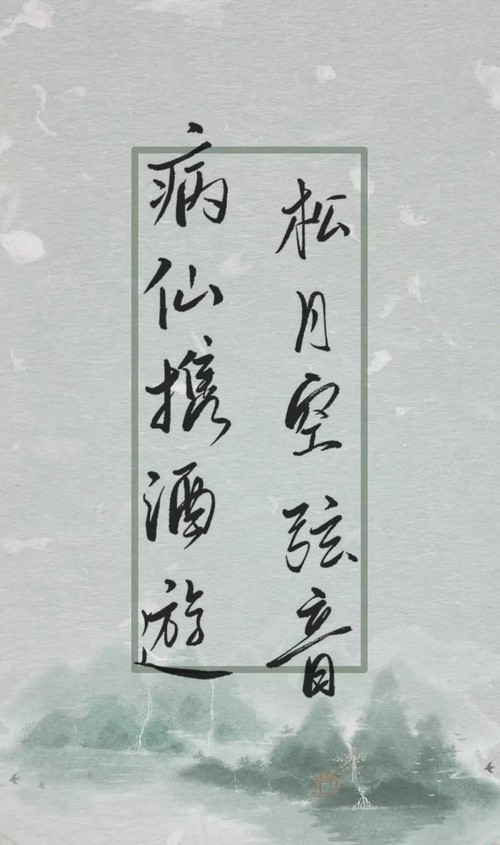 松月空弦音
病仙携酒遊